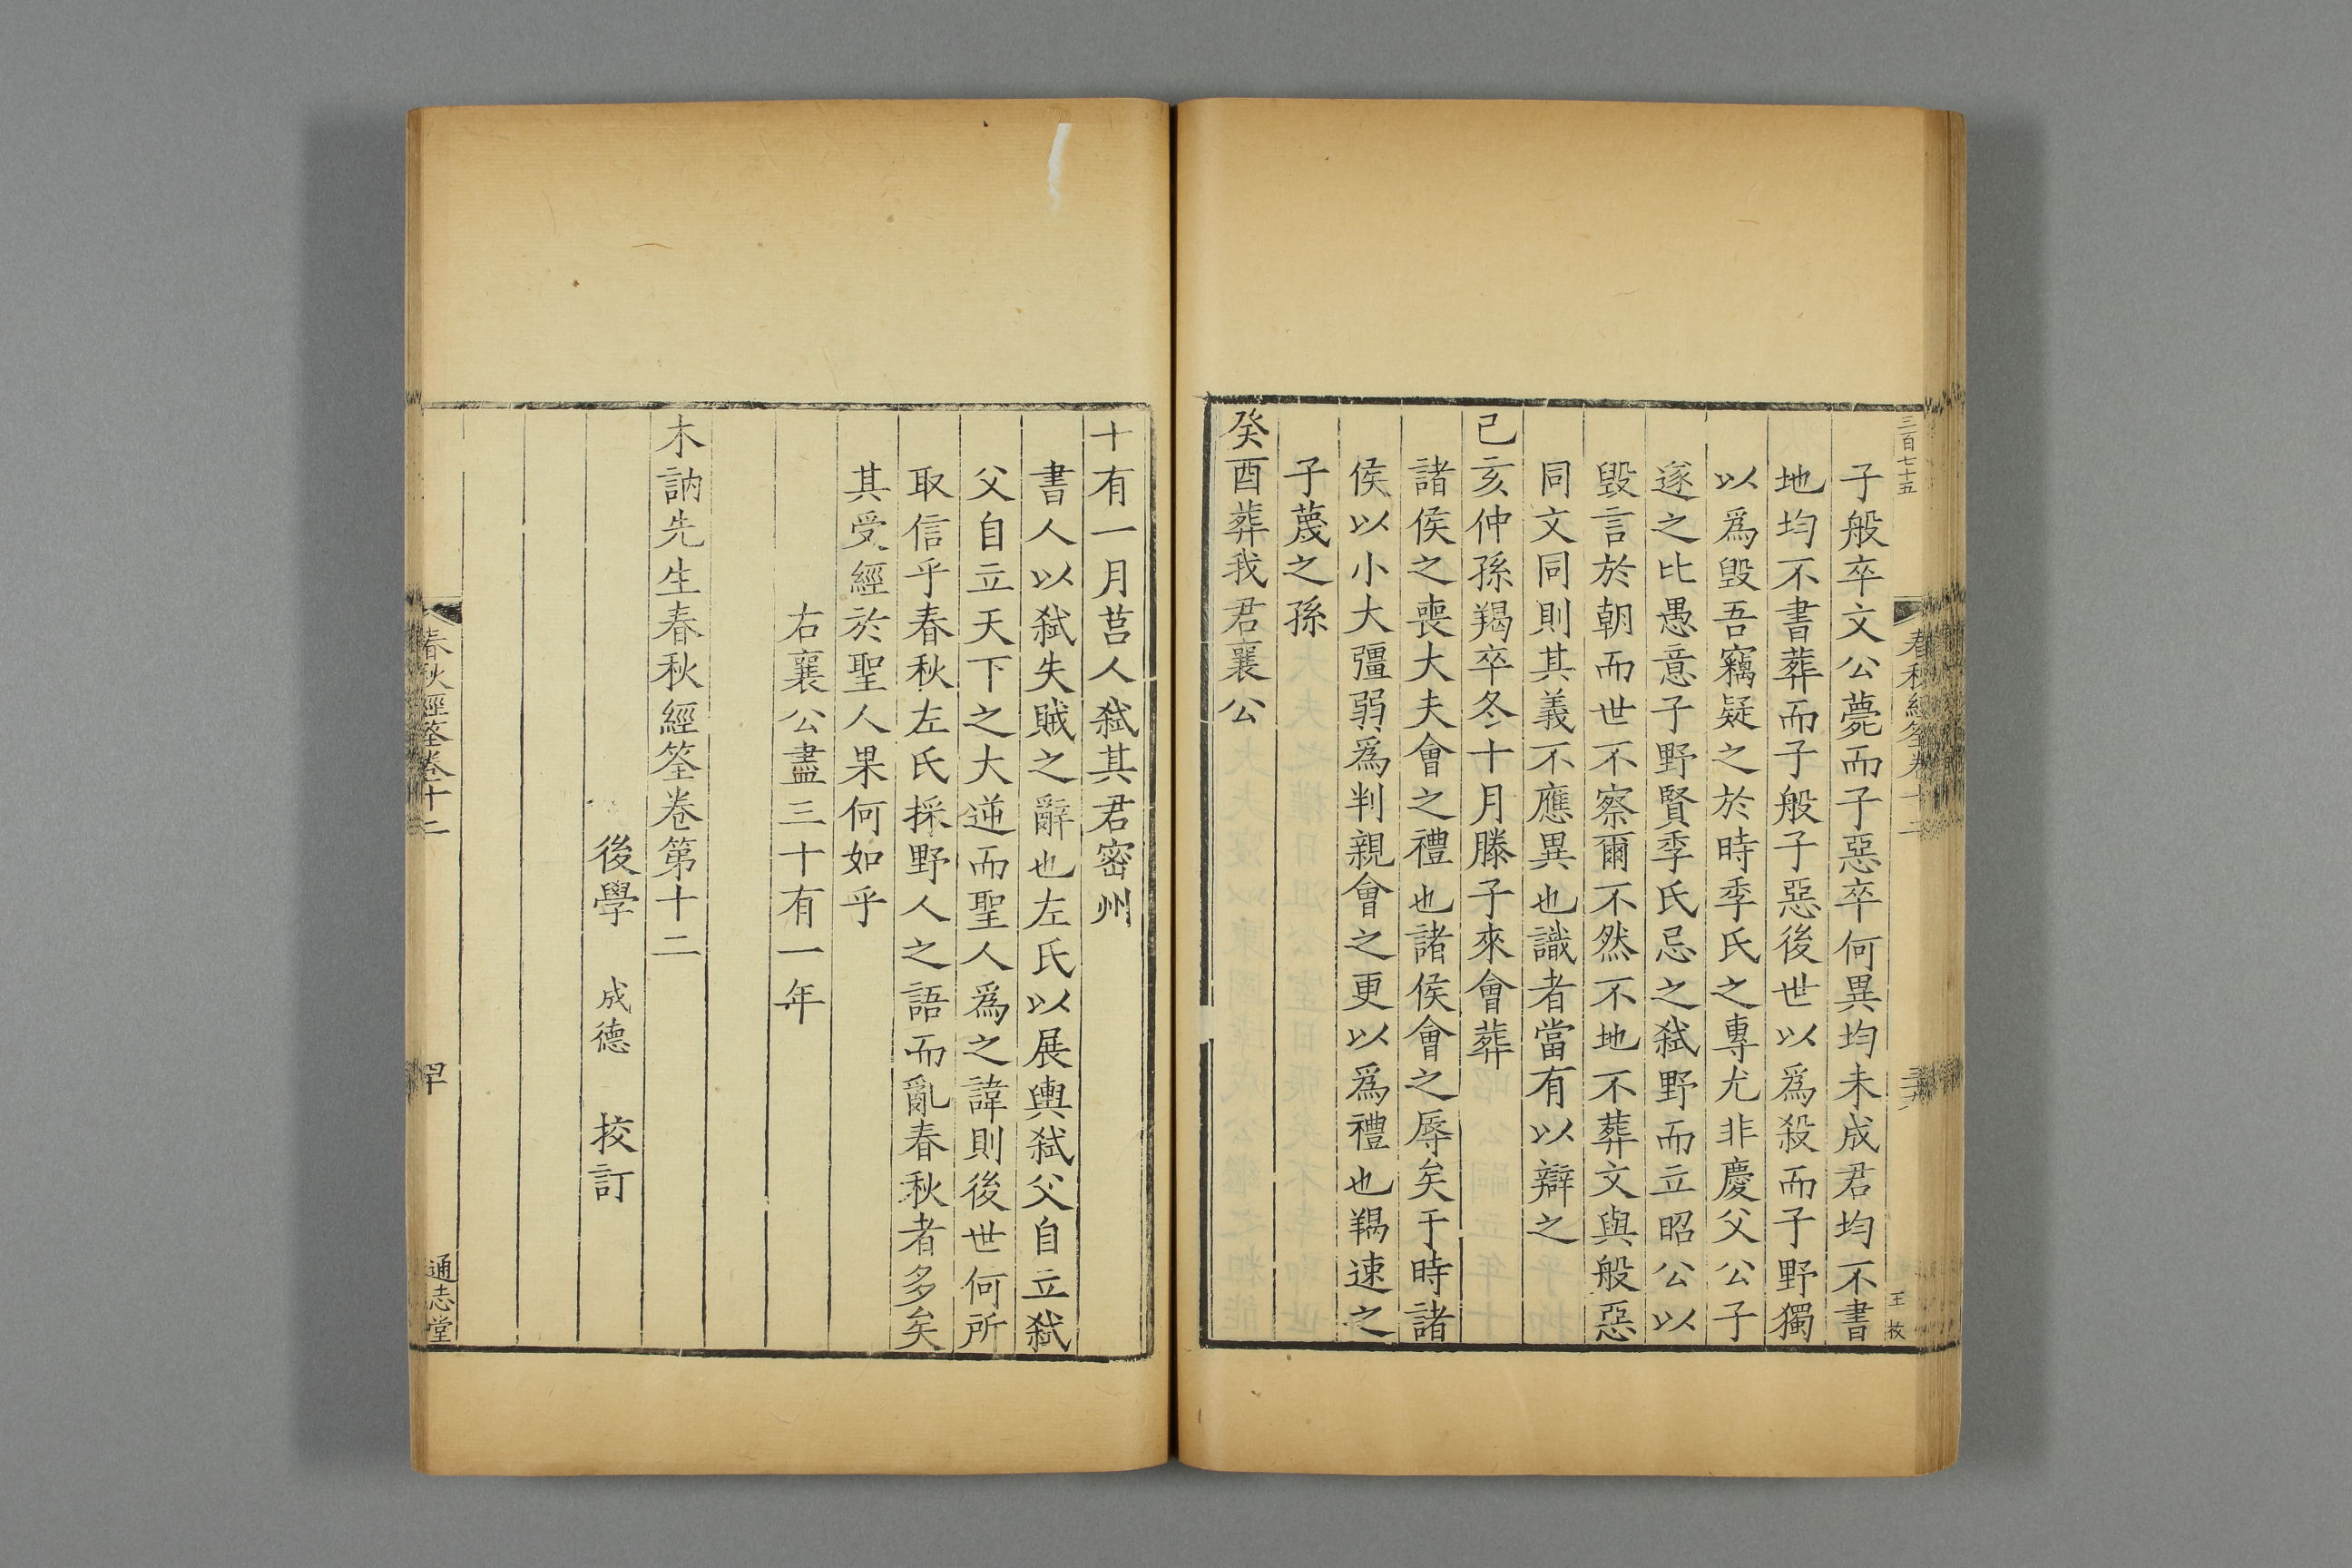 三百七十五
春秋經筌卷十二
王枚
子般卒文公薨而子惡卒何異均未成君均不書
地均不書葬而子般子惡後世以爲殺而子野獨
以爲毀吾竊疑之於時季氏之專尤非慶父公子
遂之比愚意子野賢季氏忌之弒野而立昭公以
毀言於朝而世不察爾不然不地不葬文與般惡
同文同則其義不應異也識者當有以辯之
己亥仲孫羯卒冬十月滕子來會葬
諸侯之喪大夫會之禮也諸侯會之辱矣于時諸
侯以小大彊弱爲判親會之更以爲禮也羯速之
子蔑之孫
癸酉葬我君襄公
十有一月莒人弒其君密州
書人以弒失賊之辭也左氏以展輿弒父自立弒
父自立天下之大逆而聖人爲之諱則後世何所
取信乎春秋左氏採野人之語而亂春秋者多矣
其受經於聖人果何如乎
右襄公盡三十有一年
木訥先生春秋經筌卷第十二
後學 成德 挍訂
春秋經筌卷十二
通志堂